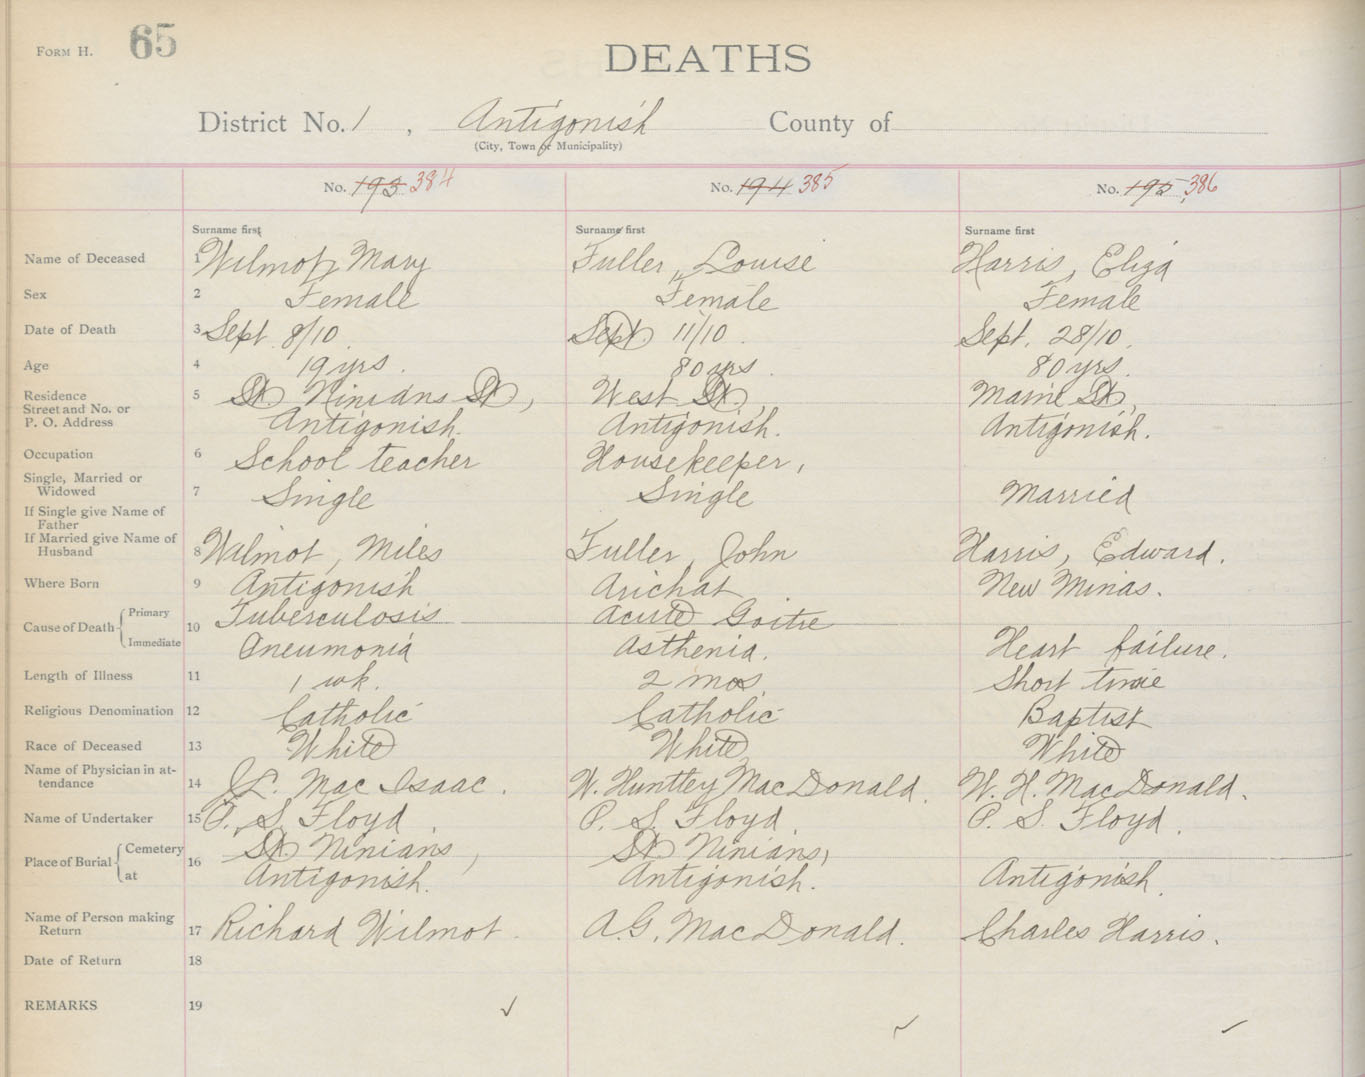 FORM H. 65
DEATHS
District No. 1, Antigonish County of
(City, Town or Municipality)
No. 193 384 No. 194 385 No. 195 386
Surname first Surname first Surname first
Name of Deceased 1 Wilmot, Mary Fuller, Louise Harris, Eliza
Sex 2 Female Female Female
Date of Death 3 Sept. 8/10. Sept. 11/10. Sept. 28/10.
Age 4 19 yrs. 80 yrs. 80 yrs.
Residence 5 St. Ninians St, West St, Main St,
Street and No. or
P. O. Address Antigonish. Antigonish. Antigonish.
Occupation 6 School teacher Housekeeper,
Single, Married or
Widowed 7 Single Single Married
If Single give Name of
Father
If Married give Name of
Husband 8 Wilmot, Miles Fuller, John Harris, Edward.
Where Born 9 Antigonish Arichat New Minas.
Cause of Death Primary 10 Tuberculosis Acute Goitre
Immediate Pneumonia Asthenia. Heart failure.
Length of Illness 11 1 wk. 2 mos. Short time
Religious Denomination 12 Catholic Catholic Baptist
Race of Deceased 13 White White White
Name of Physician in at-
tendance 14 J.L. MacIsaac. W. Huntley MacDonald. W. H. MacDonald.
Name of Undertaker 15 P. S. Floyd. P. S. Floyd. P. S. Floyd.
Place of Burial Cemetery 16 St. Ninians, St. Ninians,
at Antigonish. Antigonish. Antigonish.
Name of Person making
Return 17 Richard Wilmot. A.G. MacDonald. Charles Harris.
Date of Return 18
REMARKS 19